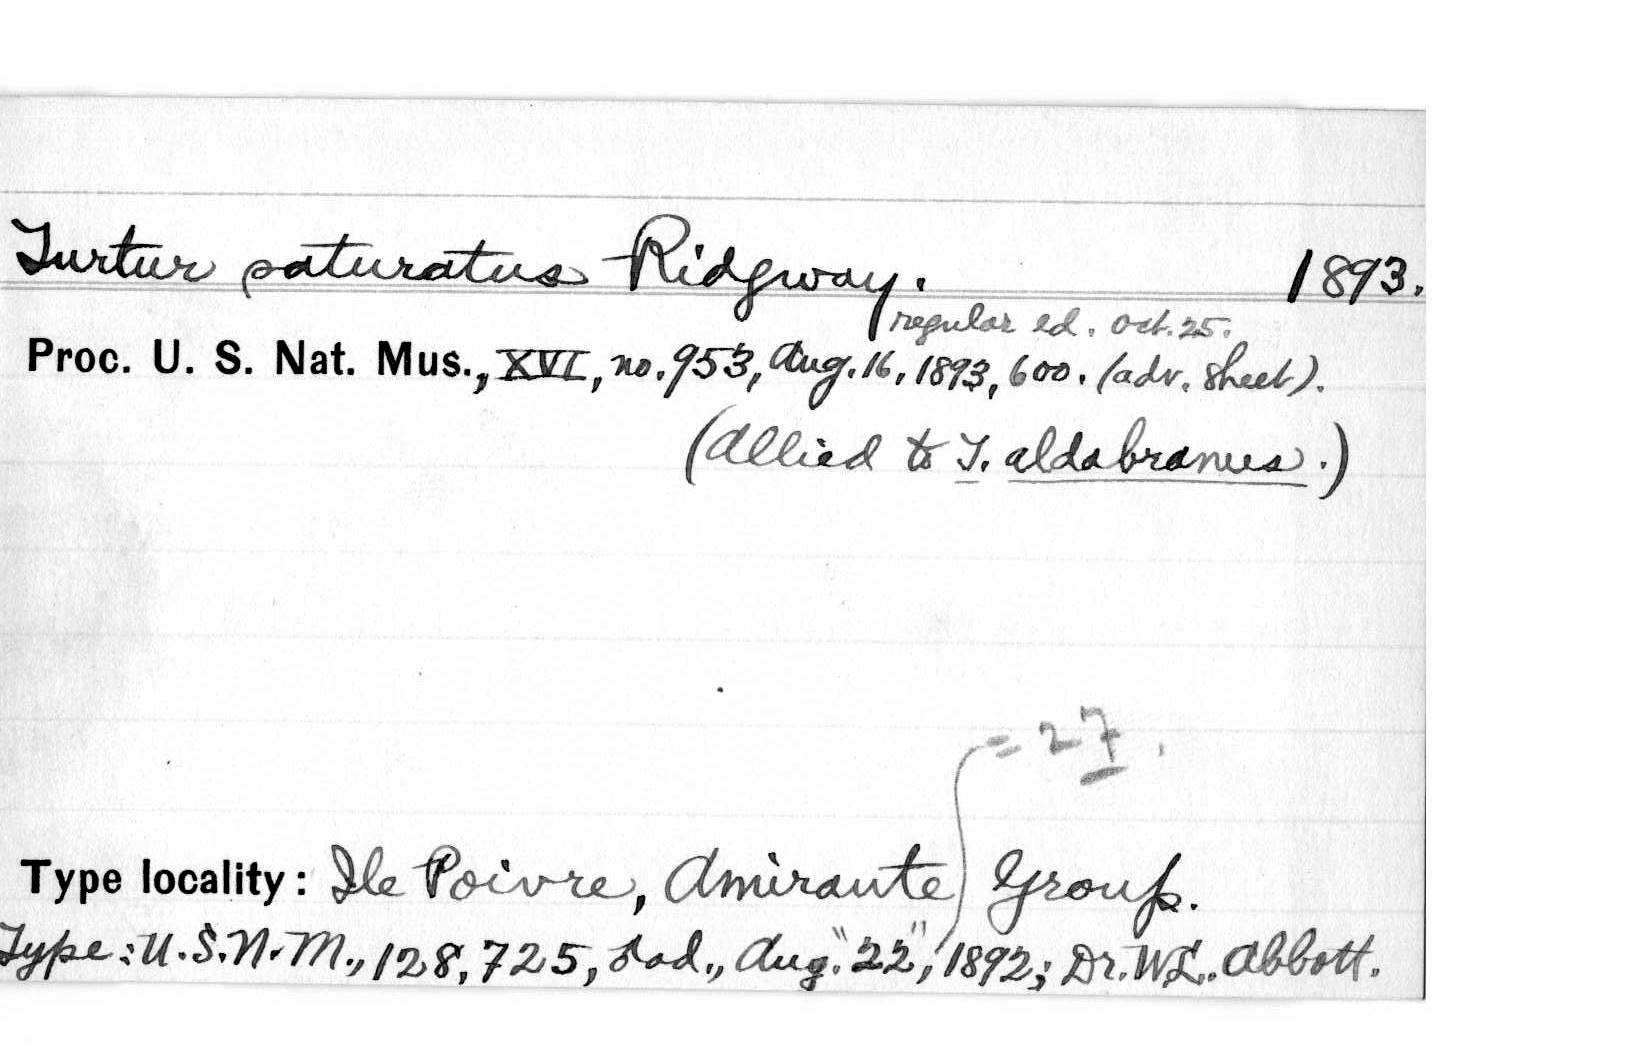 Turtur saturatus Ridgway. 1893.
regular ed. Oct. 25.
Proc. U. S. Nat. Mus., XVI, no. 953, Aug. 16, 1893, 600. (adv. sheet).
(Allied to T. aldabranus.)
= 27.
Type locality: Ile Poivre, Amirante Group.
Type: U.S.N.M., 128,725, ad., Aug. "22", 1892; Dr. W.L. Abbott.